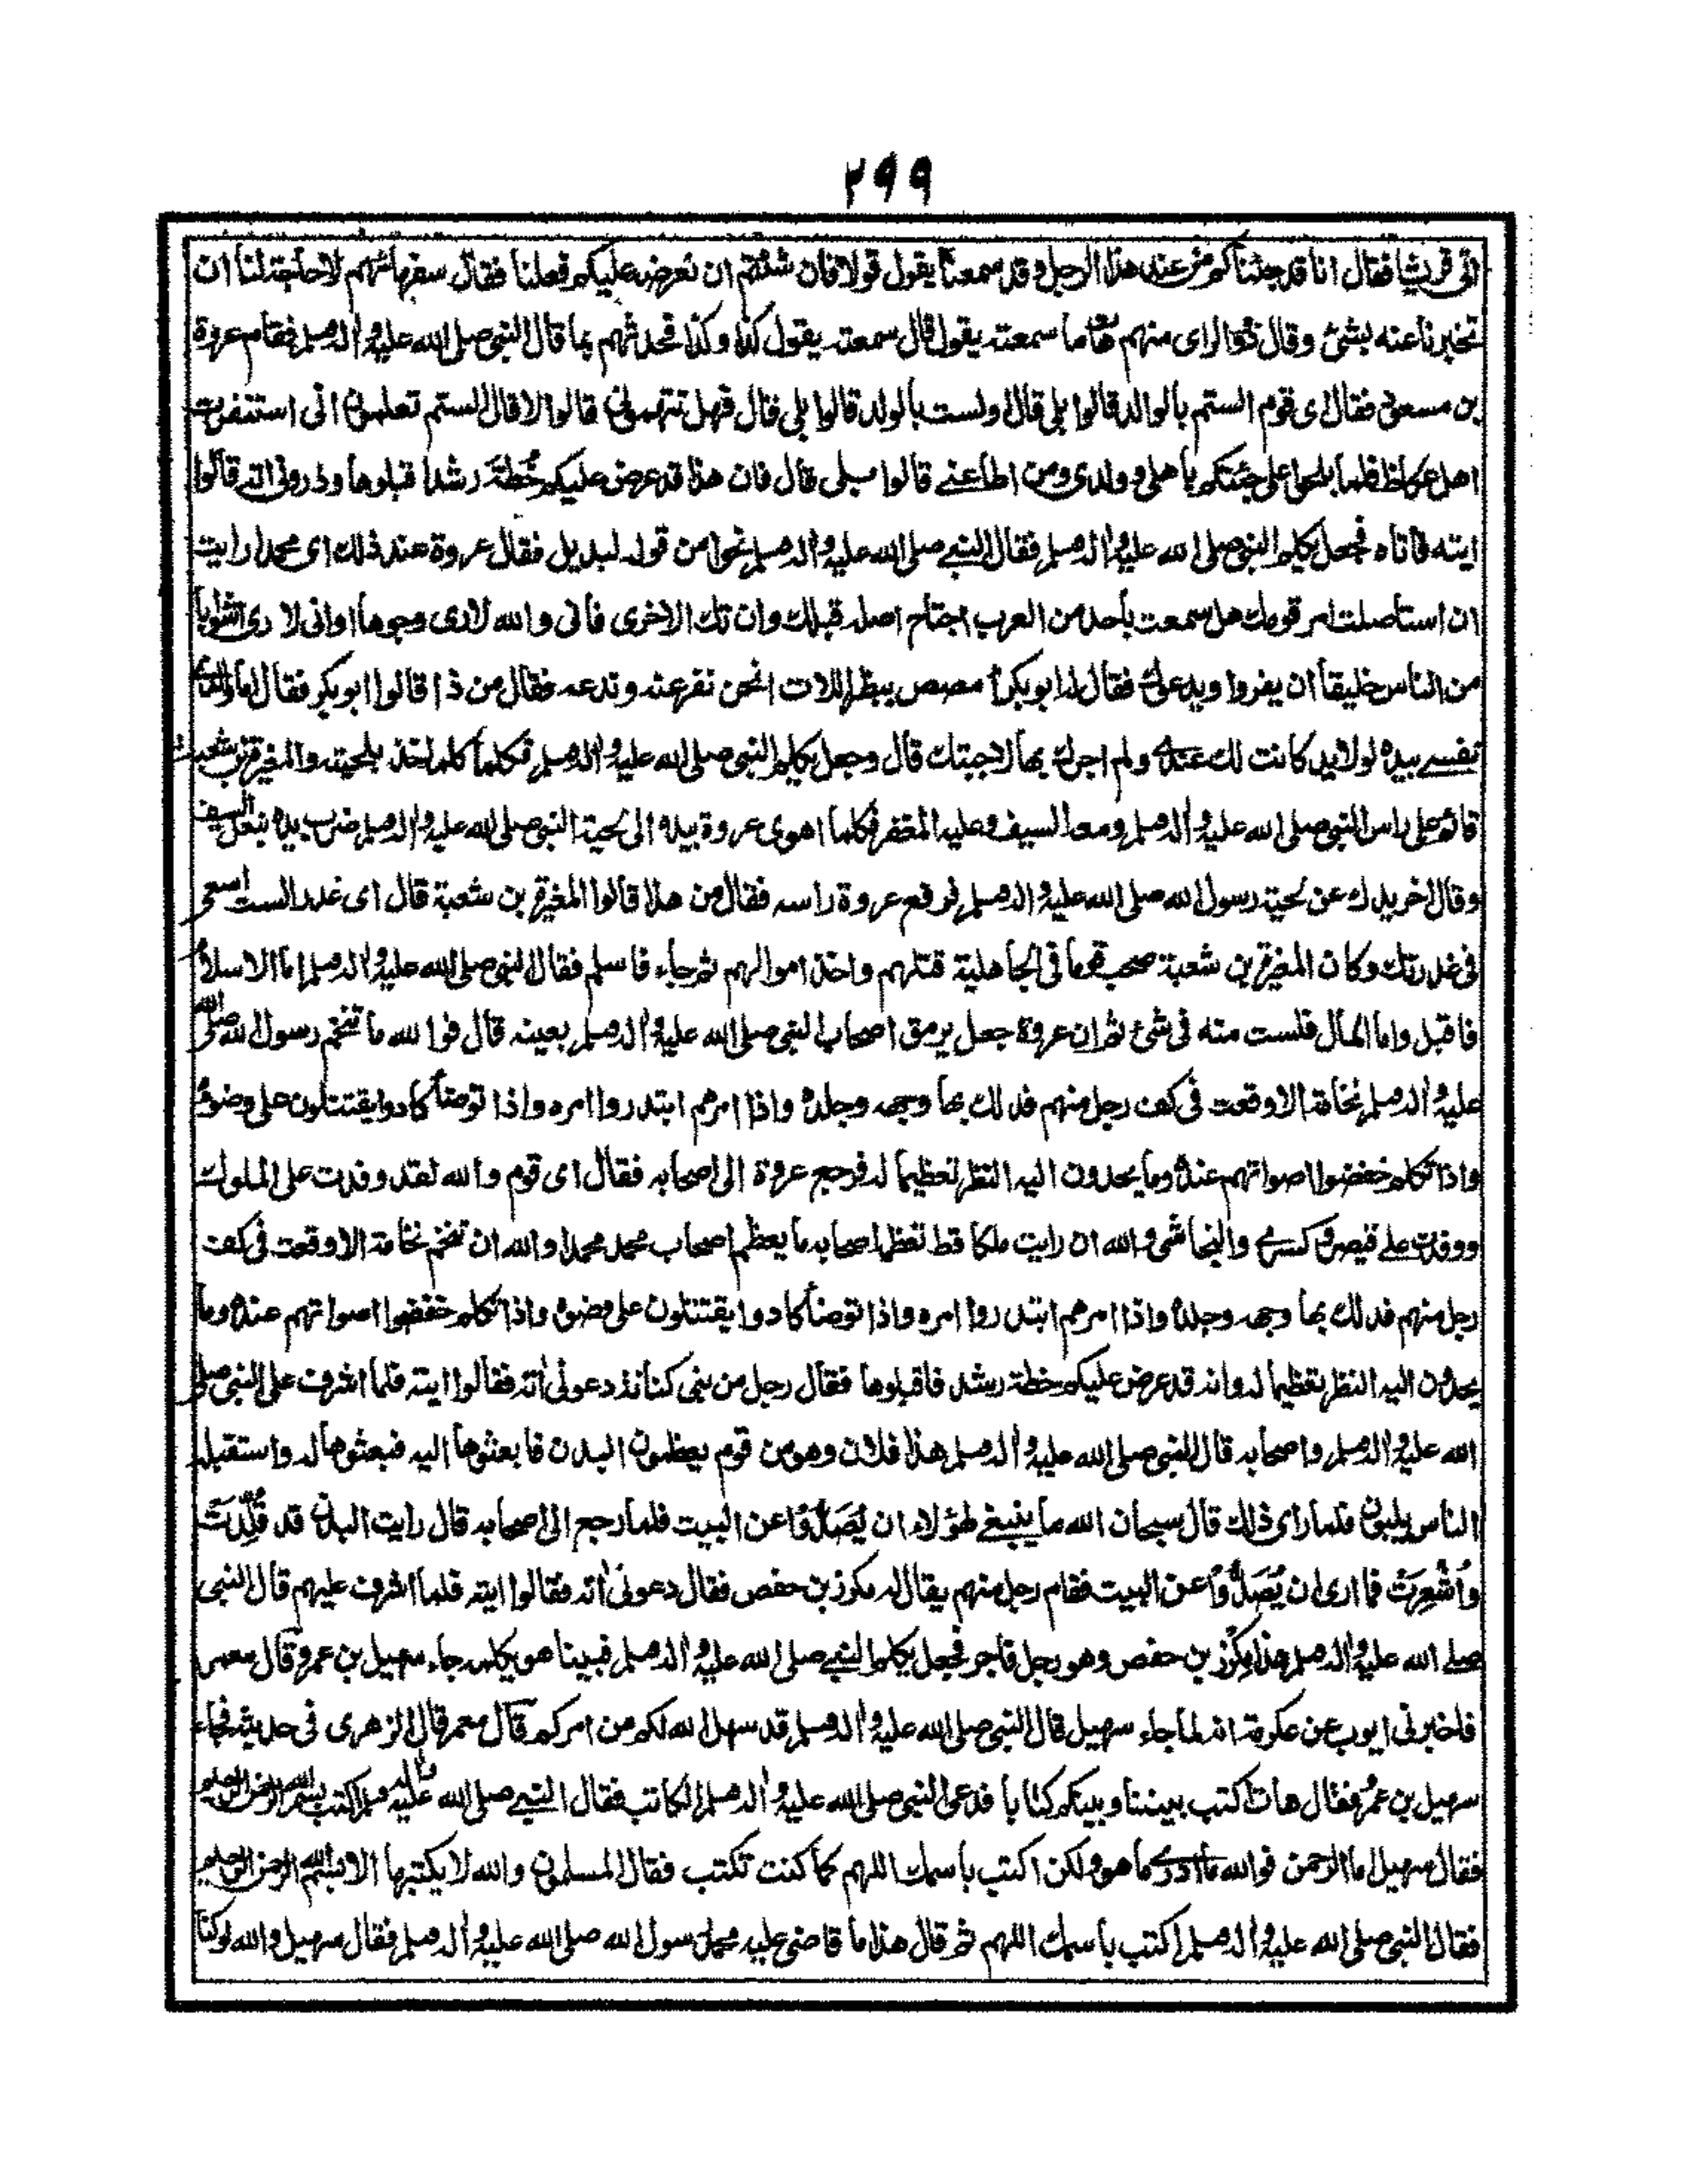 ٢٩٩
اتى قريشا فقال انا قد جئناكم من عند هذا الرجل وقد سمعناه يقول قولا فان شئتم ان نعرضه عليكم فعلنا فقال سفهائهم لا حاجة لنا ان
تخبرنا عنه بشئ وقال ذو الراى منهم هات ما سمعته يقول قال سمعته يقول كذا وكذا فحدثهم بما قال النبى صلى الله عليه واله وسلم فقام عروة
بن مسعود فقال اى قوم الستم بالوالد قالوا بلى قال اولست بالولد قالوا بلى قال فهل تتهمونى قالوا لا قال الستم تعلمون انى استنفرت
اهل عكاظ فلما بلحوا على جئتكم باهلى وولدى ومن اطاعنى قالوا بلى قال فان هذا قد عرض عليكم خُطَّةَ رشد اقبلوها وذرونى اته قالوا
ايته فاتاه فجعل يكلم النبى صلى الله عليه واله وسلم فقال النبى صلى الله عليه واله وسلم نحوا من قوله لبديل فقال عروة عند ذلك اى محمد ارايت
ان استاصلت امر قومك هل سمعت باحد من العرب اجتاح اصله قبلك وان تك الاخرى فانى والله لارى وجوها وانى لارى اشوابا
من الناس خليقا ان يفروا ويدعوك فقال له ابو بكر امصص ببظر اللات انحن نفر عنه وندعه فقال من ذا قالوا ابو بكر فقال اما والذى
نفسى بيده لولا يد كانت لك عندى ولم اجزك بها لاجبتك قال وجعل يكلم النبى صلى الله عليه واله وسلم فكلما كلمه اخذ بلحيته والمغيرة بن شعبة
قائم على راس النبى صلى الله عليه واله وسلم ومعه السيف وعليه المغفر فكلما اهوى عروة بيده الى لحية النبى صلى الله عليه واله وسلم ضرب يده بنعل السيف
وقال اخر يدك عن لحية رسول الله صلى الله عليه واله وسلم فرفع عروة راسه فقال من هذا قالوا المغيرة بن شعبة قال اى غدر الست اسعى
فى غدرتك وكان المغيرة بن شعبة صحب قوما فى الجاهلية فقتلهم واخذ اموالهم ثم جاء فاسلم فقال النبى صلى الله عليه واله وسلم اما الاسلام
فاقبل واما المال فلست منه فى شئ ثم ان عروة جعل يرمق اصحاب النبى صلى الله عليه واله وسلم بعينه قال فوا لله ما تنخم رسول الله صلى الله
عليه واله وسلم نخامة الا وقعت فى كف رجل منهم فدلك بها وجهه وجلده واذا امرهم ابتدروا امره واذا توضأ كادوا يقتتلون على وضوئه
واذا تكلم خفضوا اصواتهم عنده وما يحدون اليه النظر تعظيما له فرجع عروة الى اصحابه فقال اى قوم والله لقد وفدت على الملوك
ووفدت على قيصر وكسرى والنجاشى والله ان رايت ملكا قط تعظمه اصحابه ما يعظم اصحاب محمد محمدا والله ان تنخم نخامة الا وقعت فى كف
رجل منهم فدلك بها وجهه وجلده واذا امرهم ابتدروا امره واذا توضأ كادوا يقتتلون على وضوئه واذا تكلم خفضوا اصواتهم عنده وما
يحدون اليه النظر تعظيما له وانه قد عرض عليكم خطة رشد فاقبلوها فقال رجل من بنى كنانة دعونى اته فقالوا ايته فلما اشرف على النبى صلى
الله عليه واله وسلم واصحابه قال النبى صلى الله عليه واله وسلم هذا فلان وهو من قوم يعظمون البدن فابعثوها اليه فبعثوها له واستقبله
الناس يلبون فلما راى ذلك قال سبحان الله ما ينبغى لهؤلاء ان يُصَدُّوْا عن البيت فلما رجع الى اصحابه قال رايت البدن قد قُلِّدَتْ
وَاُشْعِرَتْ فما ارى ان يُصَدُّوْا عن البيت فقام رجل منهم يقال له مكرز بن حفص فقال دعونى اته فقالوا ايته فلما اشرف عليهم قال النبى
صلى الله عليه واله وسلم هذا مِكْرَز بن حفص وهو رجل فاجر فجعل يكلم النبى صلى الله عليه واله وسلم فبينا هو يكلمه جاء سهيل بن عمرو قال معمر
فاخبرنى ايوب عن عكرمة انه لما جاء سهيل قال النبى صلى الله عليه واله وسلم قد سهل الله لكم من امركم قال معمر قال الزهرى فى حديثه فجاء
سهيل بن عمرو فقال هات اكتب بيننا وبينكم كتابا فدعى النبى صلى الله عليه واله وسلم الكاتب فقال النبى صلى الله عليه واله وسلم اكتب بسم الله الرحمن الرحيم
فقال سهيل اما الرحمن فوالله ما ادرى ما هو ولكن اكتب باسمك اللهم كما كنت تكتب فقال المسلمون والله لا يكتبها الا بسم الله الرحمن الرحيم
فقال النبى صلى الله عليه واله وسلم اكتب باسمك اللهم ثم قال هذا ما قاضى عليه محمد رسول الله صلى الله عليه واله وسلم فقال سهيل والله لو كنا